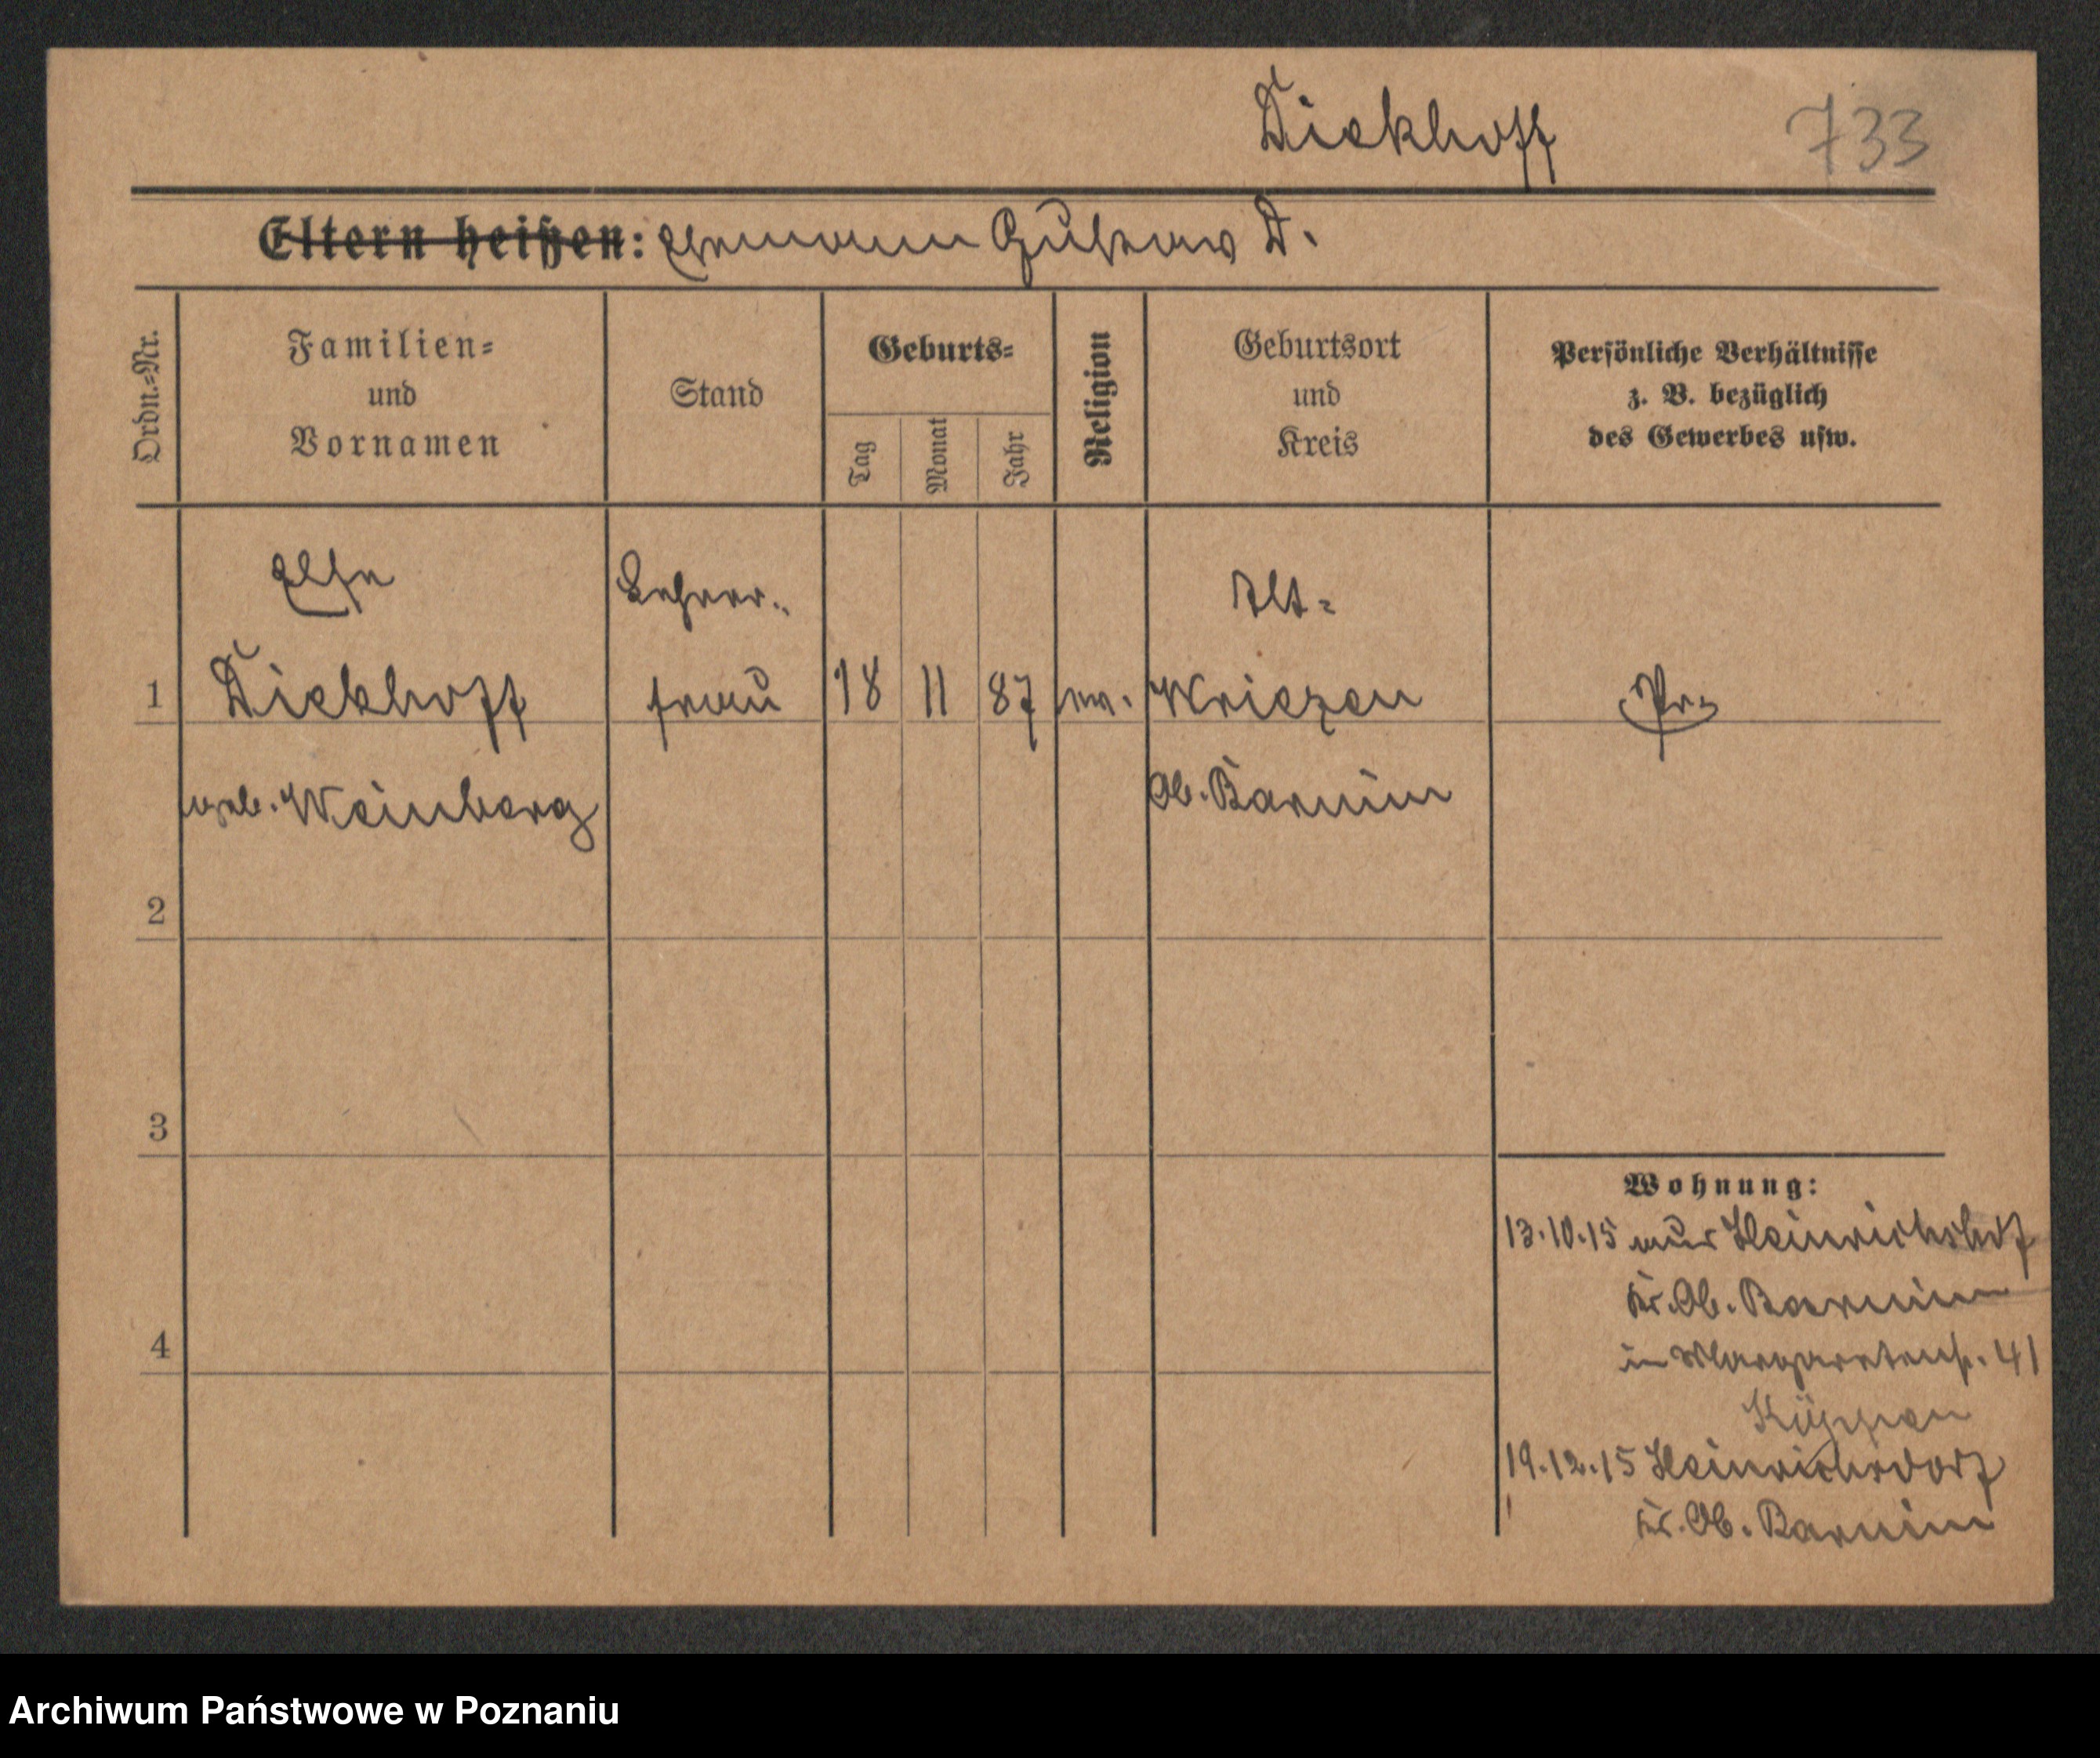 Dickhoff 733
Eltern heißen: Ehemann Gustav D.
Ordn.-Nr.
Familien-
und
Vornamen
Stand
Geburts-
Tag
Monat
Jahr
Religion
Geburtsort
und
Kreis
Persönliche Verhältnisse
z. B. bezüglich
des Gewerbes usw.
Else Lehrer- Alt-
1 Dickhoff frau 18 11 87 ev. Wriezen Pr.
geb. Weinberg Ob. Barnim
2
3
4
Wohnung:
13.10.15 aus Heinrichshof
Kr. Ob. Barnim
in Margaretenstr. 41
19.12.15 Heinrichsdorf
Kr. Ob. Barnim
Archiwum Państwowe w Poznaniu